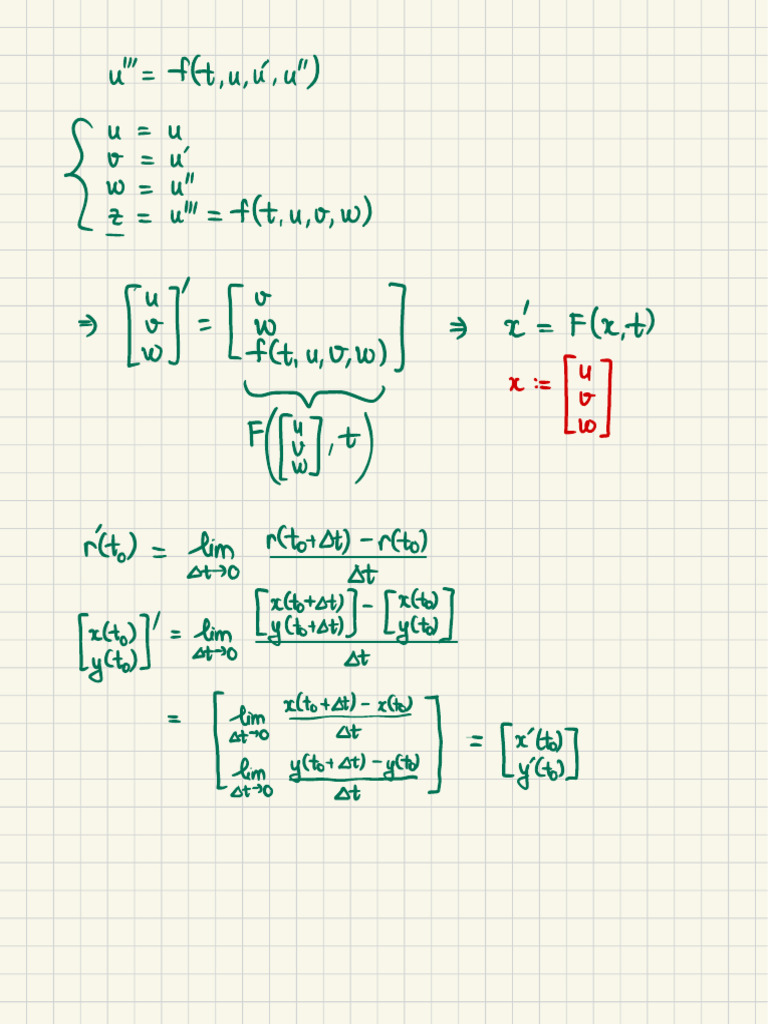 u''' = f(t, u, u', u'')
u = u
v = u'
w = u''
z = u''' = f(t, u, v, w)
⇒ [u v w]' = [v w f(t, u, v, w)] ⇒ x' = F(x, t)
F([u v w], t)
x := [u v w]
r'(t₀) = lim Δt→0 (r(t₀+Δt) − r(t₀)) / Δt
[x(t₀) y(t₀)]' = lim Δt→0 ([x(t₀+Δt) y(t₀+Δt)] − [x(t₀) y(t₀)]) / Δt
= [lim Δt→0 (x(t₀+Δt) − x(t₀)) / Δt
lim Δt→0 (y(t₀+Δt) − y(t₀)) / Δt] = [x'(t₀) y'(t₀)]